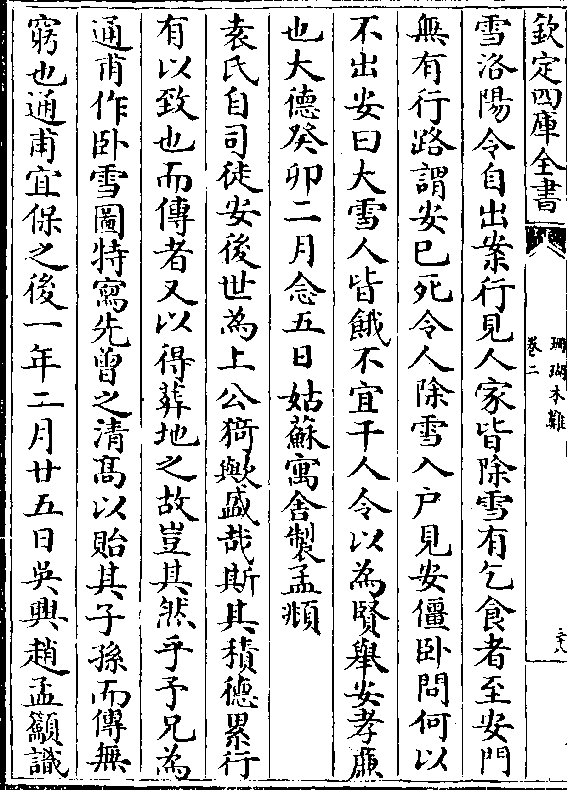 欽定四庫全書
珊瑚木難
卷二
雪洛陽令自出案行見人家皆除雪有乞食者至安門
無有行路謂安已死令人除雪入户見安僵卧問何以
不出安曰大雪人皆餓不宜干人令以為賢舉安孝廉
也大德癸卯二月念五日姑蘇寓舎製孟頫
袁氏自司徒安後世為上公猗歟盛哉斯其積德累行
有以致也而傳者又以得葬地之故豈其然乎予兄為
通甫作卧雪圖特寫先曾之清髙以貽其子孫而傳無
窮也通甫宜保之後一年二月廿五日吳興趙孟籲識